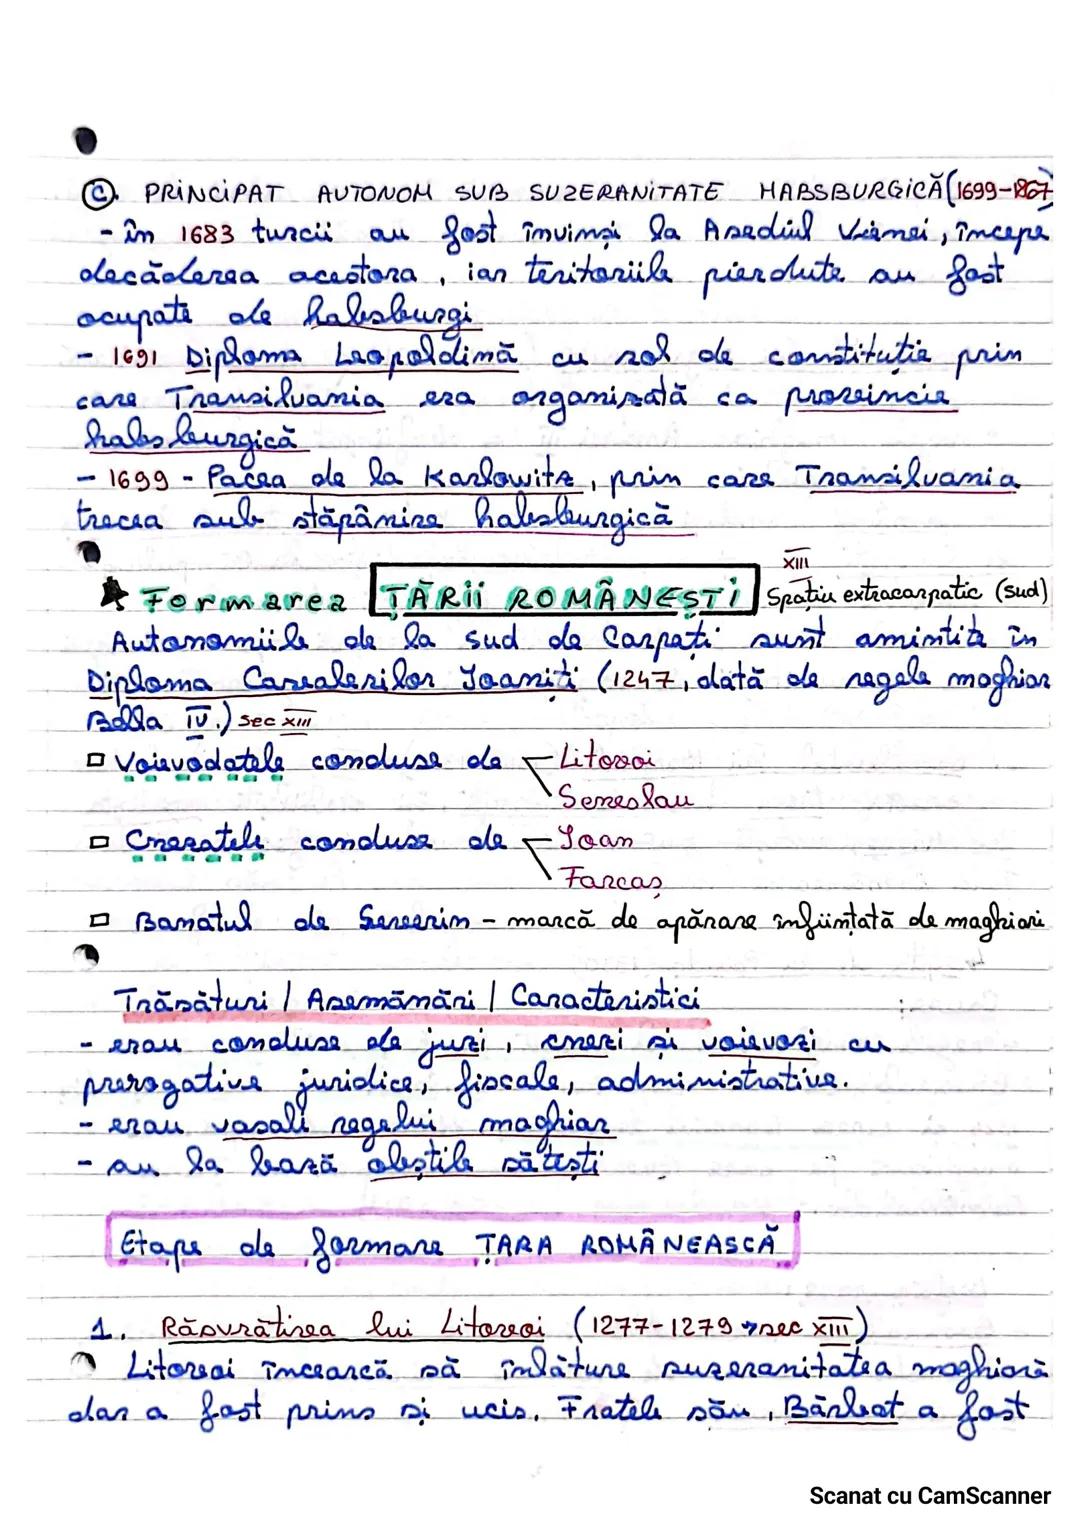 C. PRINCIPAT AUTONOM SUB SUZERANITATE HABSBURGICĂ (1699-1867)
- în 1683 turcii au fost învinși la Asediul Vienei, începe
decăderea acestora, iar teritoriile pierdute au fost
ocupate de habsburgi
- 1691 Diploma Leopoldină cu rol de constituție prin
care Transilvania era organizată ca provincie
habsburgică
- 1699 - Pacea de la Karlowitz, prin care Transilvania
trecea sub stăpânire habsburgică
XIII
Formarea ȚĂRII ROMÂNEȘTI Spațiu extracarpatic (sud)
Autonomiile de la sud de Carpați sunt amintite în
Diploma Cavalerilor Ioaniți (1247, dată de regele maghiar
Bella IV.) sec XIII
Voievodatele conduse de Litovoi
Seneslau
Cnezatele conduse de Ioan
Farcaș
Banatul de Severin - marcă de apărare înființată de maghiari
Trăsături / Asemănări / Caracteristici
- erau conduse de juzi, cnezi și voievozi cu
prerogative juridice, fiscale, administrative.
- erau vasali regelui maghiar
- au la bază obștile sătești
Etape de formare ȚARA ROMÂNEASCĂ
1. Răsvrătirea lui Litovoi (1277-1279 → sec XIII)
Litovoi încearcă să înlăture suzeranitatea maghiară
dar a fost prins și ucis. Fratele său, Bărbat a fost
Scanat cu CamScanner